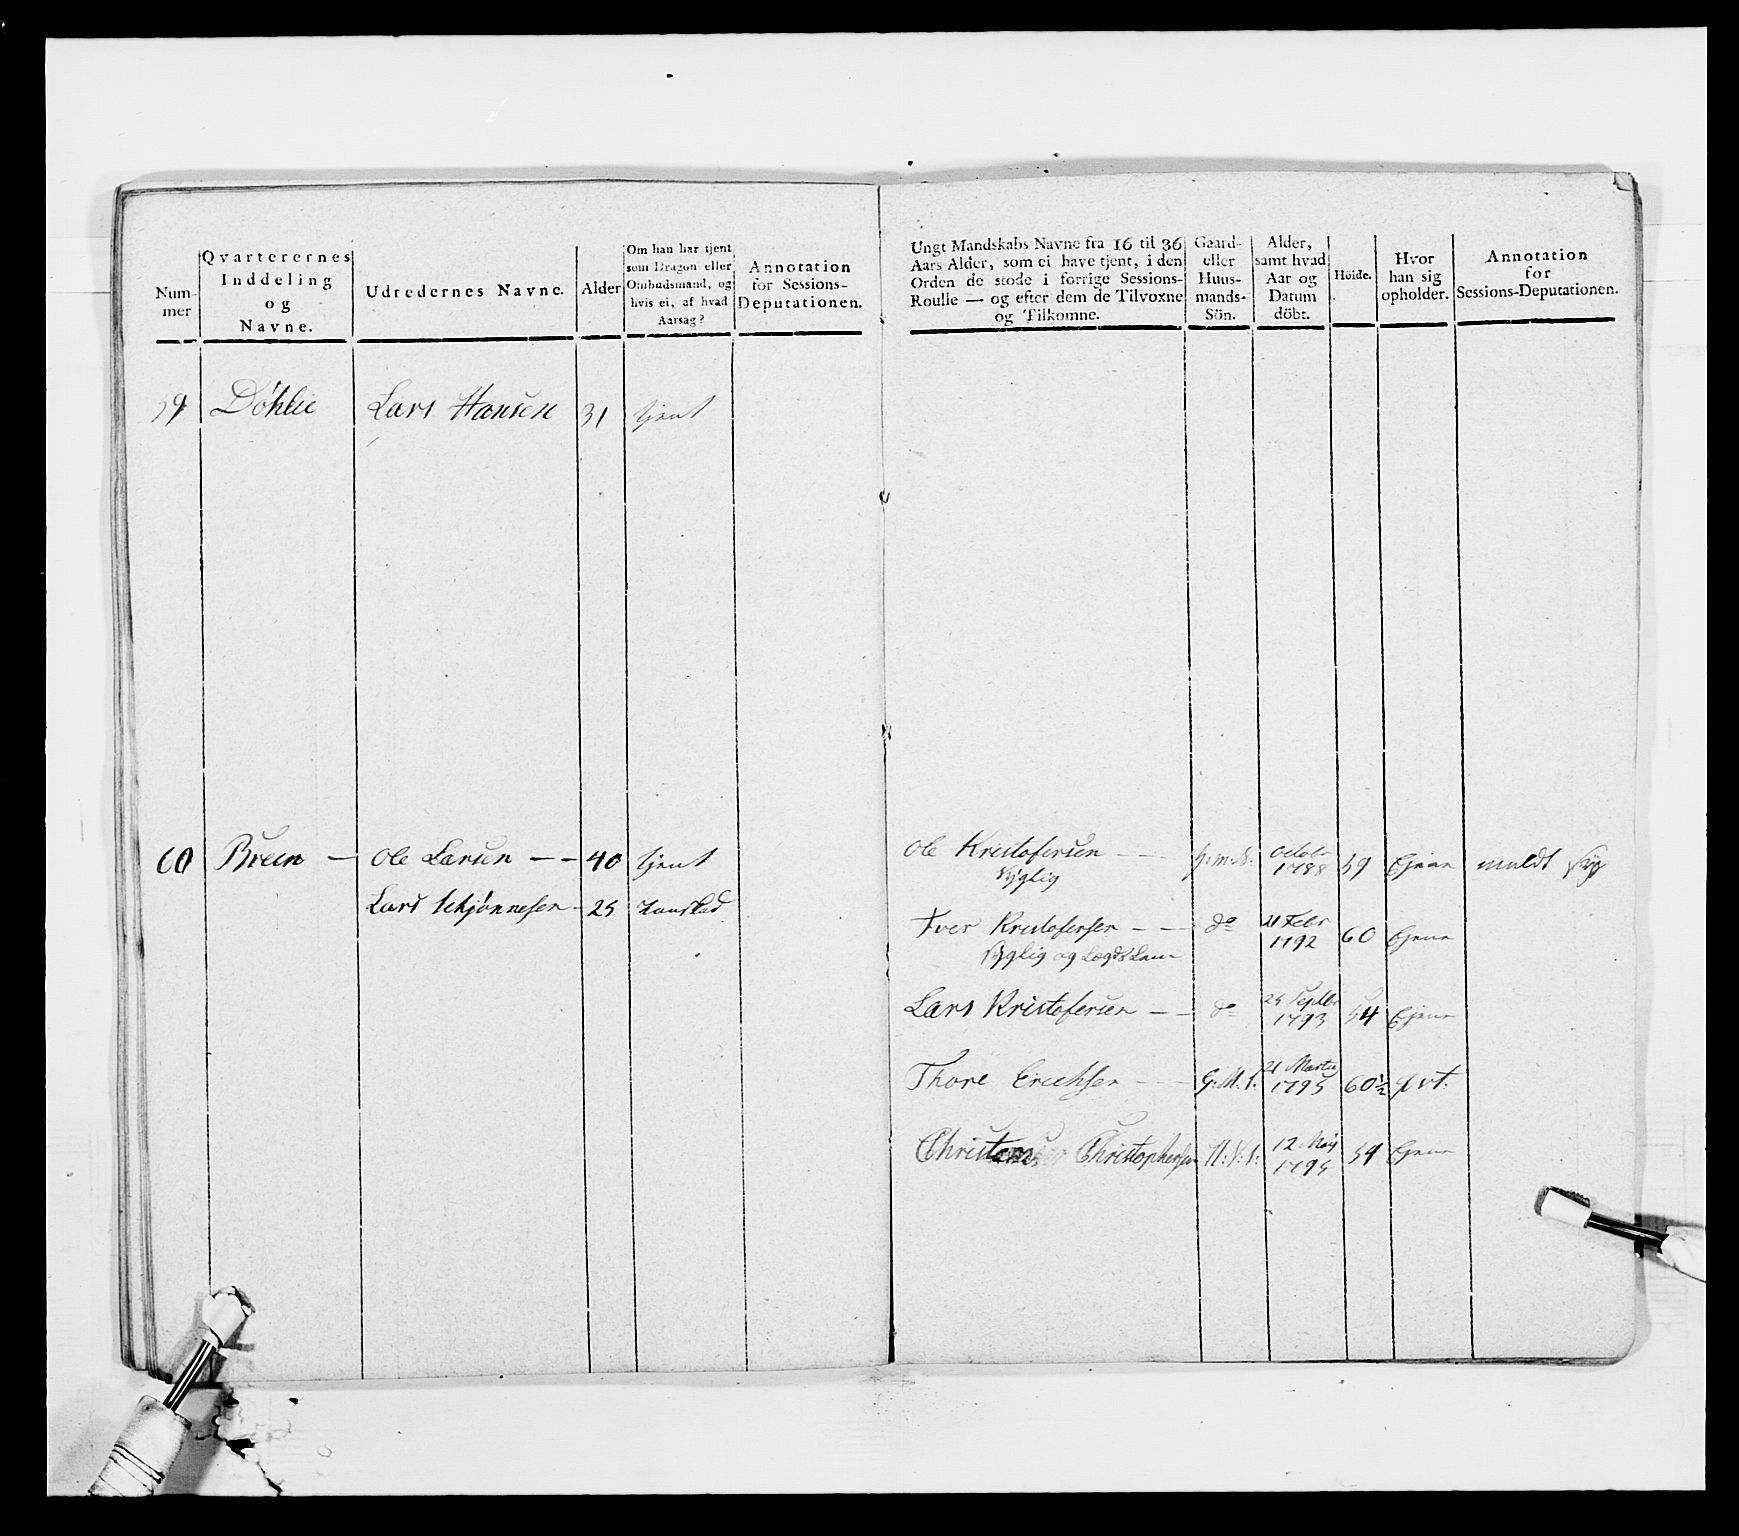 Num-
mer
Qvarterernes
Inddeling
og
Navne.
Udredernes Navne.
Alder
Om han har tjent
som Dragon eller
Ombudsmand, og
hvis ei, af hvad
Aarsag?
Annotation
for Sessions-
Deputationen.
59 Döhlie Lars Hansen 31 tjent
60 Breen — Ole Larsen — — 40 tjent
Lars Schjønnesen - 25
Ungt Mandskabs Navne fra 16 til 36
Aars Alder, som ei have tjent, i den
Orden de stode i forrige Sessions-
Roulle — og efter dem de Tilvoxne
og Tilkomne.
Gaard-
eller
Huus-
mands-
Sön.
Alder,
samt hvad
Aar og
Datum
döbt.
Höide.
Hvor
han sig
opholder.
Annotation
for
Sessions-Deputationen.
Ole Kristofersen — — G:M:S: Octobr 59 Ejene
syglig 1788
Iver Kristofersen — — do 21 Febr 60 Ejene
syglig og 1792
Lars Kristofersen — — do 25 Septbr 54 Ejene
1793
Thore Erichsen — — G:M:S: 21 Martii 60½ qvt:
1795
Christophersen H:M:S: 12 Maij 59 Ejene
1795